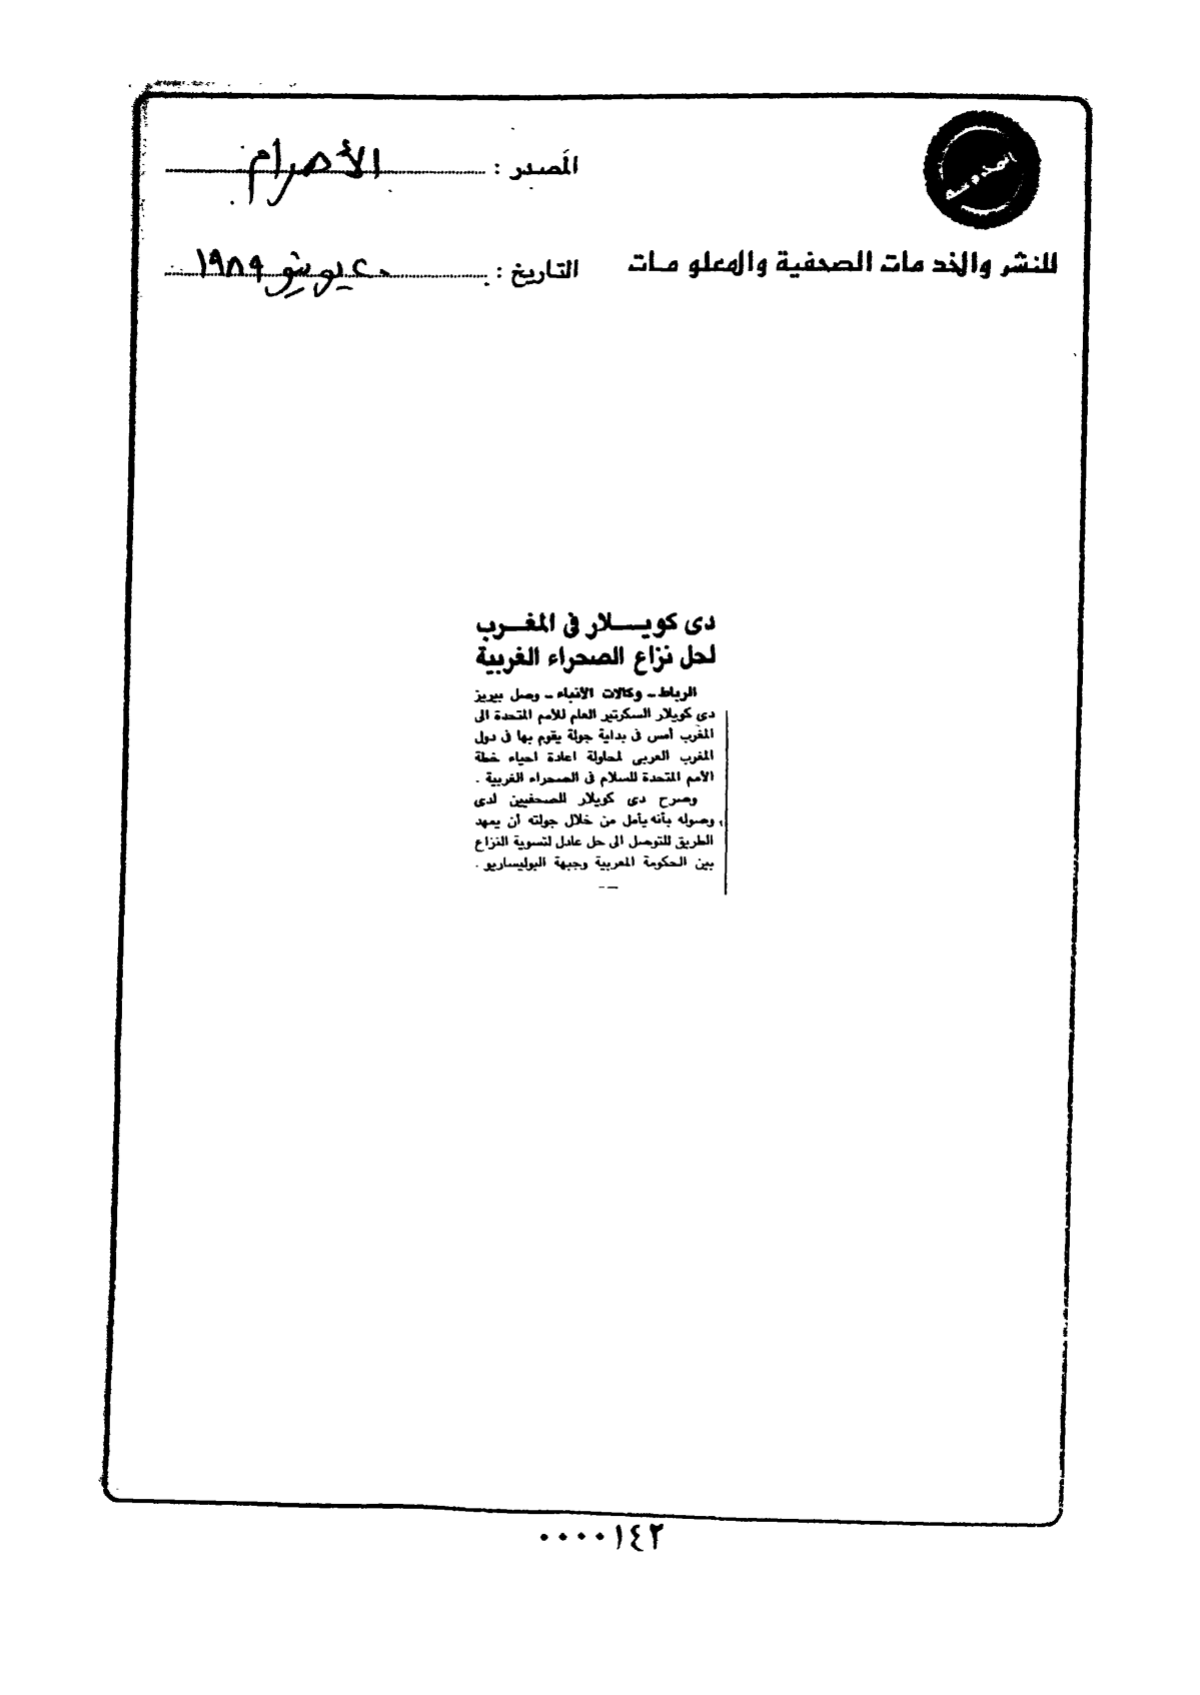 المصدر : الأهرام
للنشر والخدمات الصحفية والمعلومات
التاريخ : ٢٠ يونيو ١٩٨٩
دى كويلار فى المغرب
لحل نزاع الصحراء الغربية
الرباط ـ وكالات الأنباء ـ وصل بيريز
دى كويلار السكرتير العام للأمم المتحدة الى
المغرب أمس فى بداية جولة يقوم بها فى دول
المغرب العربى لمحاولة اعادة احياء خطة
الأمم المتحدة للسلام فى الصحراء الغربية .
وصرح دى كويلار للصحفيين لدى
وصوله بأنه يأمل من خلال جولته أن يمهد
الطريق للتوصل الى حل عادل لتسوية النزاع
بين الحكومة المغربية وجبهة البوليساريو .
٠٠٠٠١٤٢